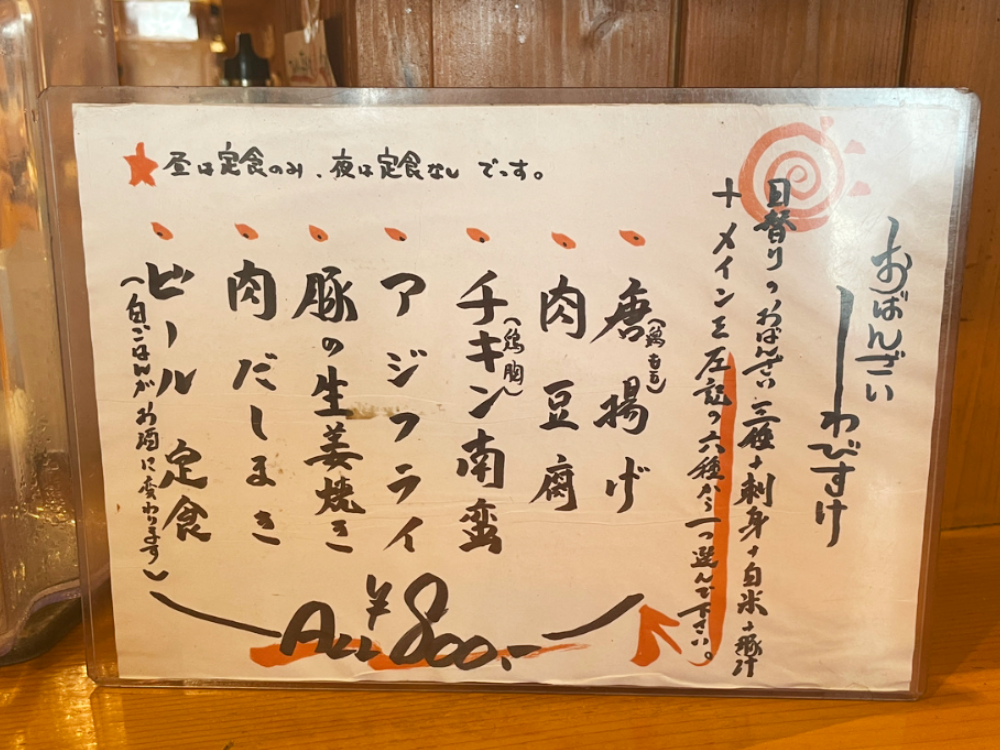 おばんざい
わびすけ
日替りのおばんざい三種+刺身+白米+豚汁
+メインを左記の六種から一つ選んで下さい。
★昼は定食のみ、夜は定食なしです。
唐揚げ
(鶏もも)
肉豆腐
チキン南蛮
(鶏胸)
アジフライ
豚の生姜焼き
肉だしまき
ビール定食
(白ごはんがお酒に変わります)
ALL ¥800.-